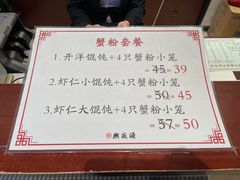 蟹粉套餐
1.开洋馄饨+4只蟹粉小笼
=45=39
2.虾仁小馄饨+4只蟹粉小笼
=50=45
3.虾仁大馄饨+4只蟹粉小笼
=57=50
熙盛源